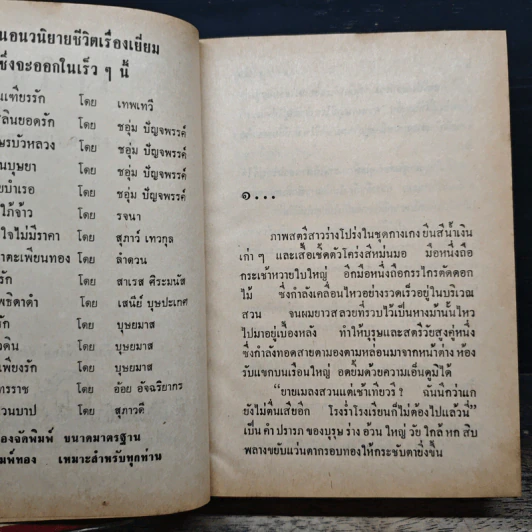 นอนวนิยายชีวิตเรื่องเยี่ยม
ซึ่งจะออกในเร็ว ๆ นี้
นเฑียรรัก โดย เทพเทวี
สลินยอดรัก โดย ชอุ่ม ปัญจพรรค์
ษรบัวหลวง โดย ชอุ่ม ปัญจพรรค์
นบุษยา โดย ชอุ่ม ปัญจพรรค์
ยบำเรอ โดย ชอุ่ม ปัญจพรรค์
ไภ้จ้าว โดย รจนา
ใจไม่มีราคา โดย สุภาว์ เทวกุล
าตะเพียนทอง โดย ลำดวน
รัก โดย สาเรส ศิระมนัส
พธิดาดำ โดย เสนีย์ บุษปะเกศ
รัก โดย บุษยมาส
วดิน โดย บุษยมาส
เพียงรัก โดย บุษยมาส
ทรราช โดย อ้อย อัจฉริยากร
วนบาป โดย สุภาวดี
องจัดพิมพ์ ขนาดมาตรฐาน
มพ์ทอง เหมาะสำหรับทุกท่าน
๑...
ภาพสตรีสาวร่างโปร่งในชุดกางเกงยีนสีน้ำเงิน
เก่า ๆ และเสื้อเชิ้ตตัวโคร่งสีหม่นมอ มือหนึ่งถือ
กระเช้าหวายใบใหญ่ อีกมือหนึ่งถือกรรไกรตัดดอก
ไม้ ซึ่งกำลังเคลื่อนไหวอย่างรวดเร็วอยู่ในบริเวณ
สวน จนผมยาวสลวยที่รวบไว้เป็นหางม้านั้นไหว
ไปมาอยู่เบื้องหลัง ทำให้บุรุษและสตรีวัยสูงคู่หนึ่ง
ซึ่งกำลังทอดสายตามองตามหล่อนมาจากหน้าต่าง ห้อง
รับแขกบนเรือนใหญ่ อดยิ้มด้วยความเอ็นดูมิได้
"ยายเมลงสวนแต่เช้าเทียวรึ ? ฉันนึกว่าแก
ยังไม่ตื่นเสียอีก โรงร่ำโรงเรียนก็ไม่ต้องไปแล้วนี่"
เป็น คำ ปรารภ ของบุรุษ ร่าง อ้วน ใหญ่ วัย ใกล้ หก สิบ
พลางขยับแว่นตากรอบทองให้กระชับตายิ่งขึ้น